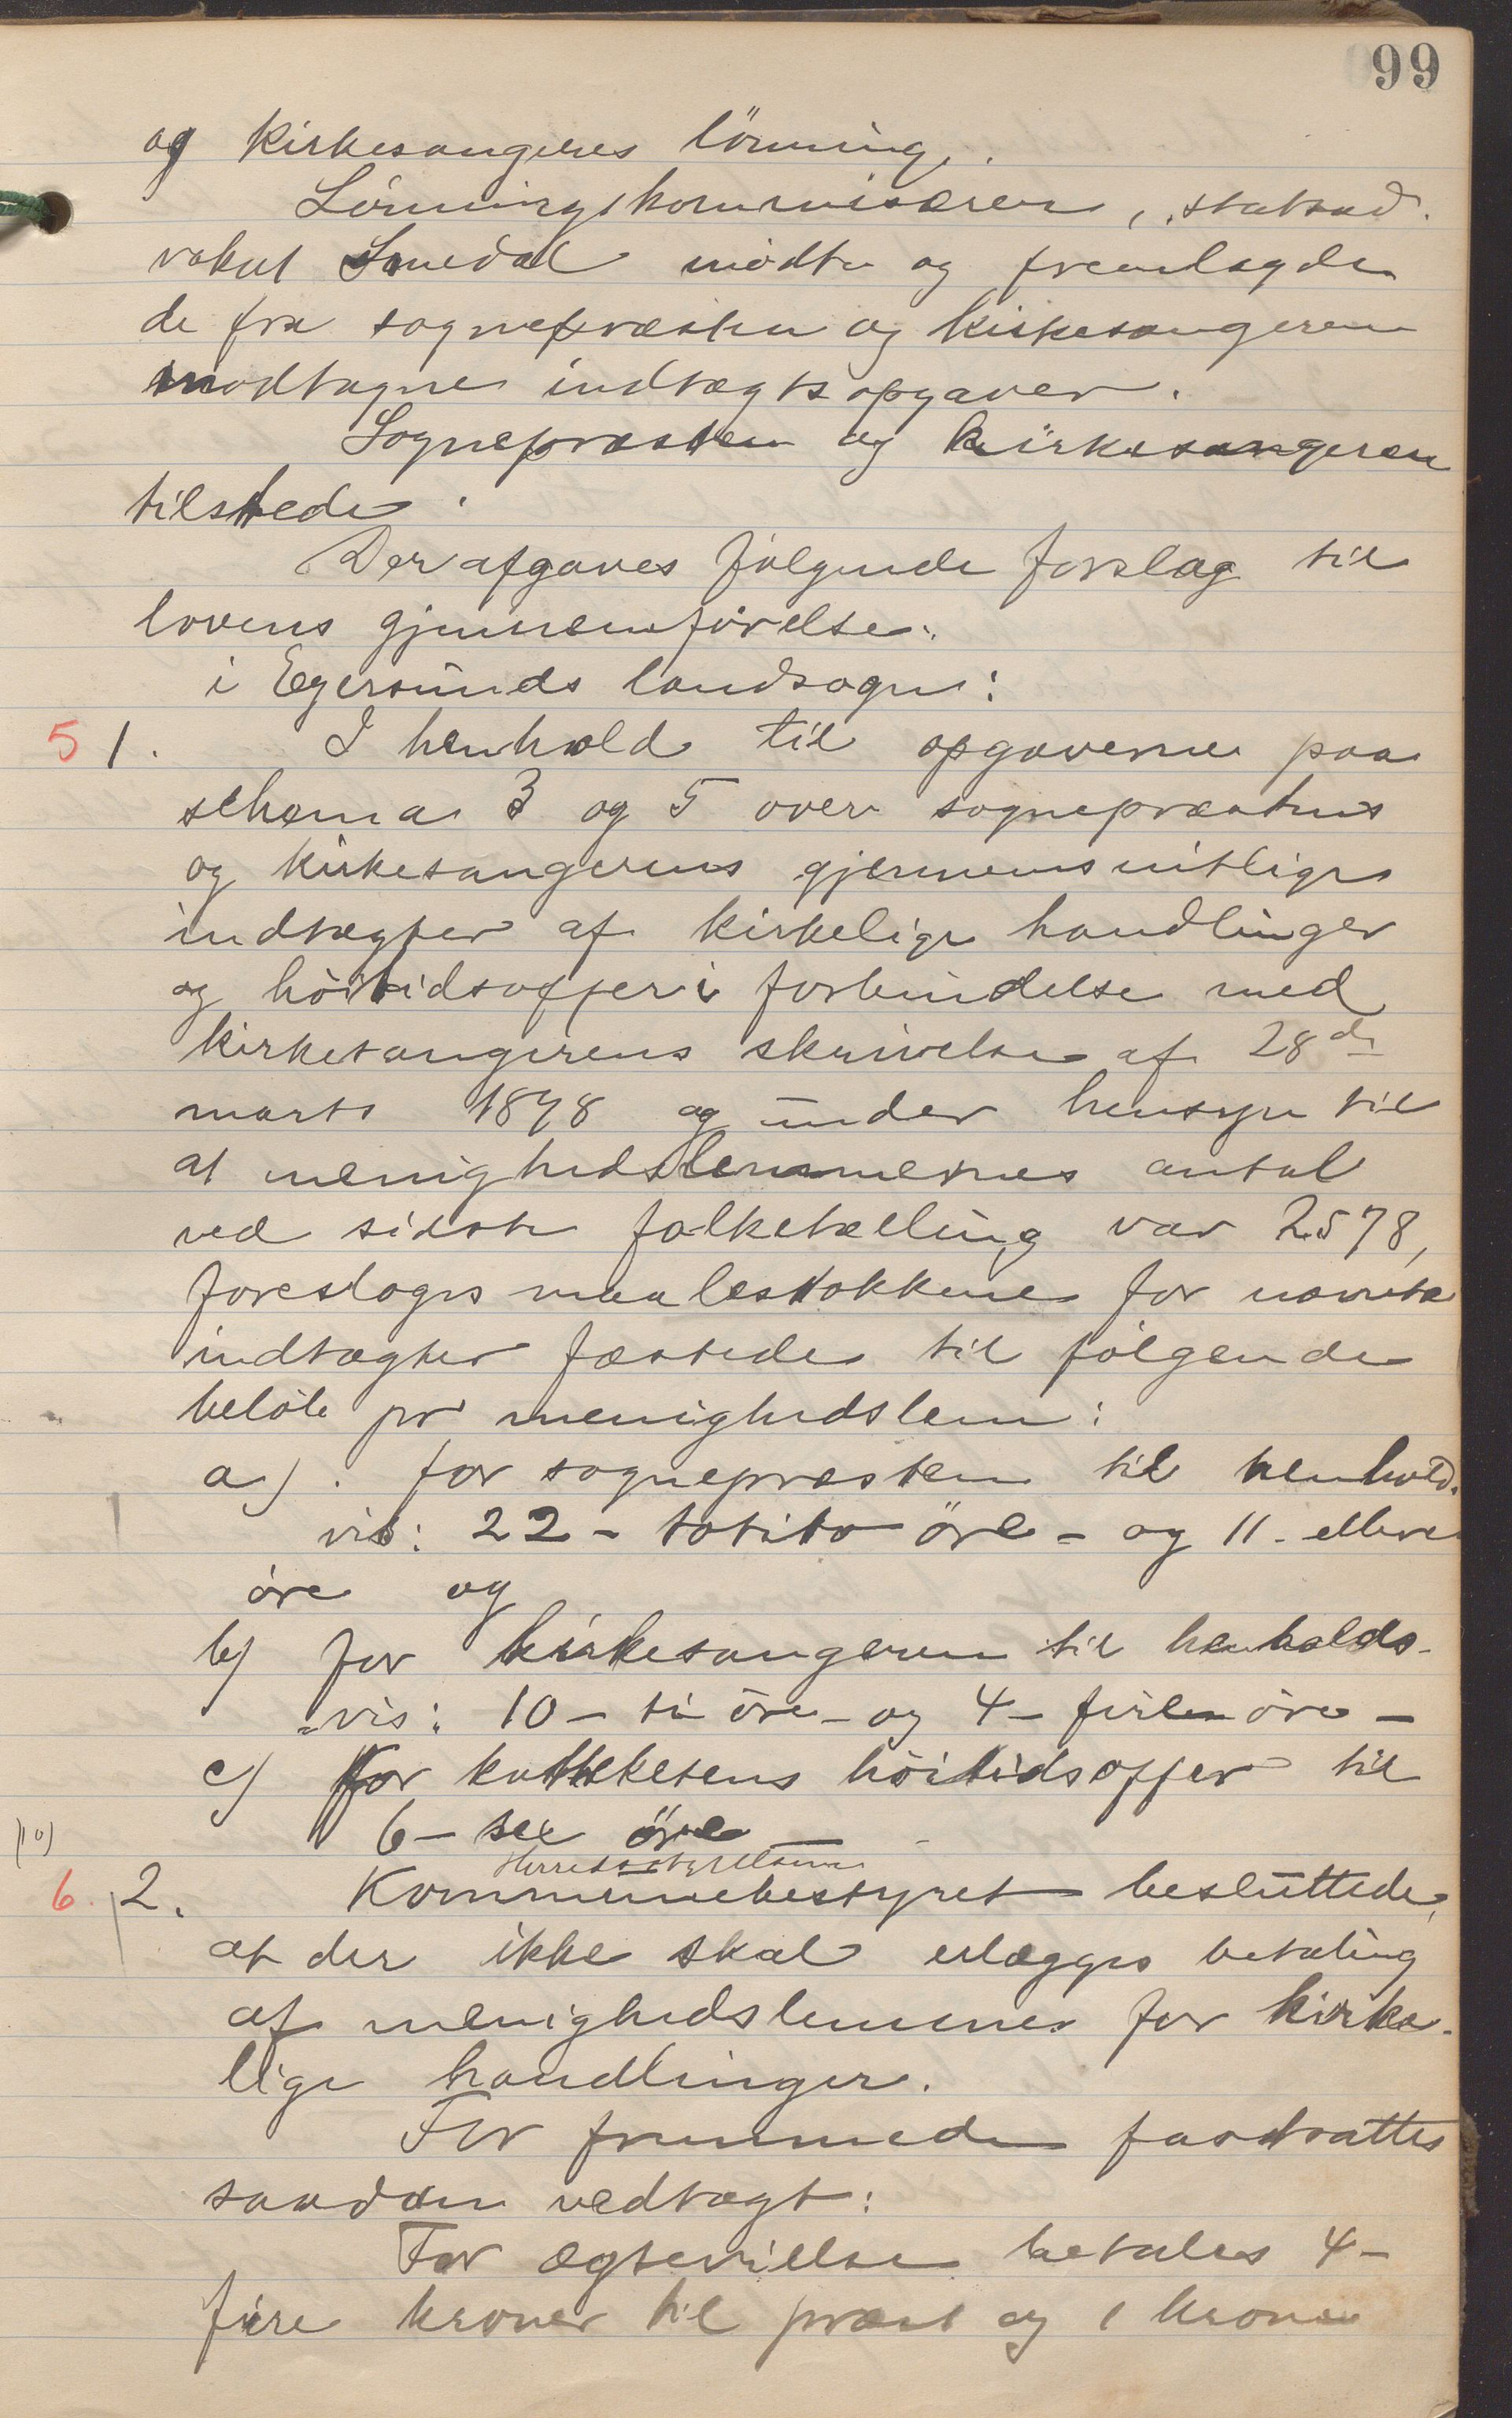 99
og kirkesangeres lönning.
Lönningskommisæren, statsad-
vokat Smedal mödte og fremlagde
de fra sognepræsten og kirkesangeren
modtagne indtægtsopgaver.
Sognepræsten og kirkesangeren
tilstede.
Der afgaves følgende forslag til
lovens gjennemförelse
i Egersunds landsogn:
5 1. I henhold til opgaverne paa
schema 3 og 5 over sognepræstens
og kirkesangerens gjennemsnitlige
indtægter af kirkelige handlinger
og höitidsoffer i forbindelse med
kirkesangerens skrivelse af 28de
marts 1898 og under hensyn til
at menighedslemmernes antal
ved sidste folketælling var 2578,
foreslages maalestokkene for nævnte
indtægter fastede til følgende
belöb pr menighedslem:
a). for sognepræsten til henhold.
vis: 22 - totito öre - og 11 - elleve
öre og
b) for kirkesangeren til henholds-
vis: 10 - ti öre - og 4 - fire öre -
c) for kathketens höitidsoffer til
(10)
6 - sex öre —
Herredsstyrelsen
6. 2. Kommunebestyret besluttede,
at der ikke skal erlægges betaling
af menighedslemmer for kirke-
lige handlinger.
For fremmede fastsattes
saadan vedtægt:
For ægtevielse betales 4 -
fire kroner til præst og 1 krone